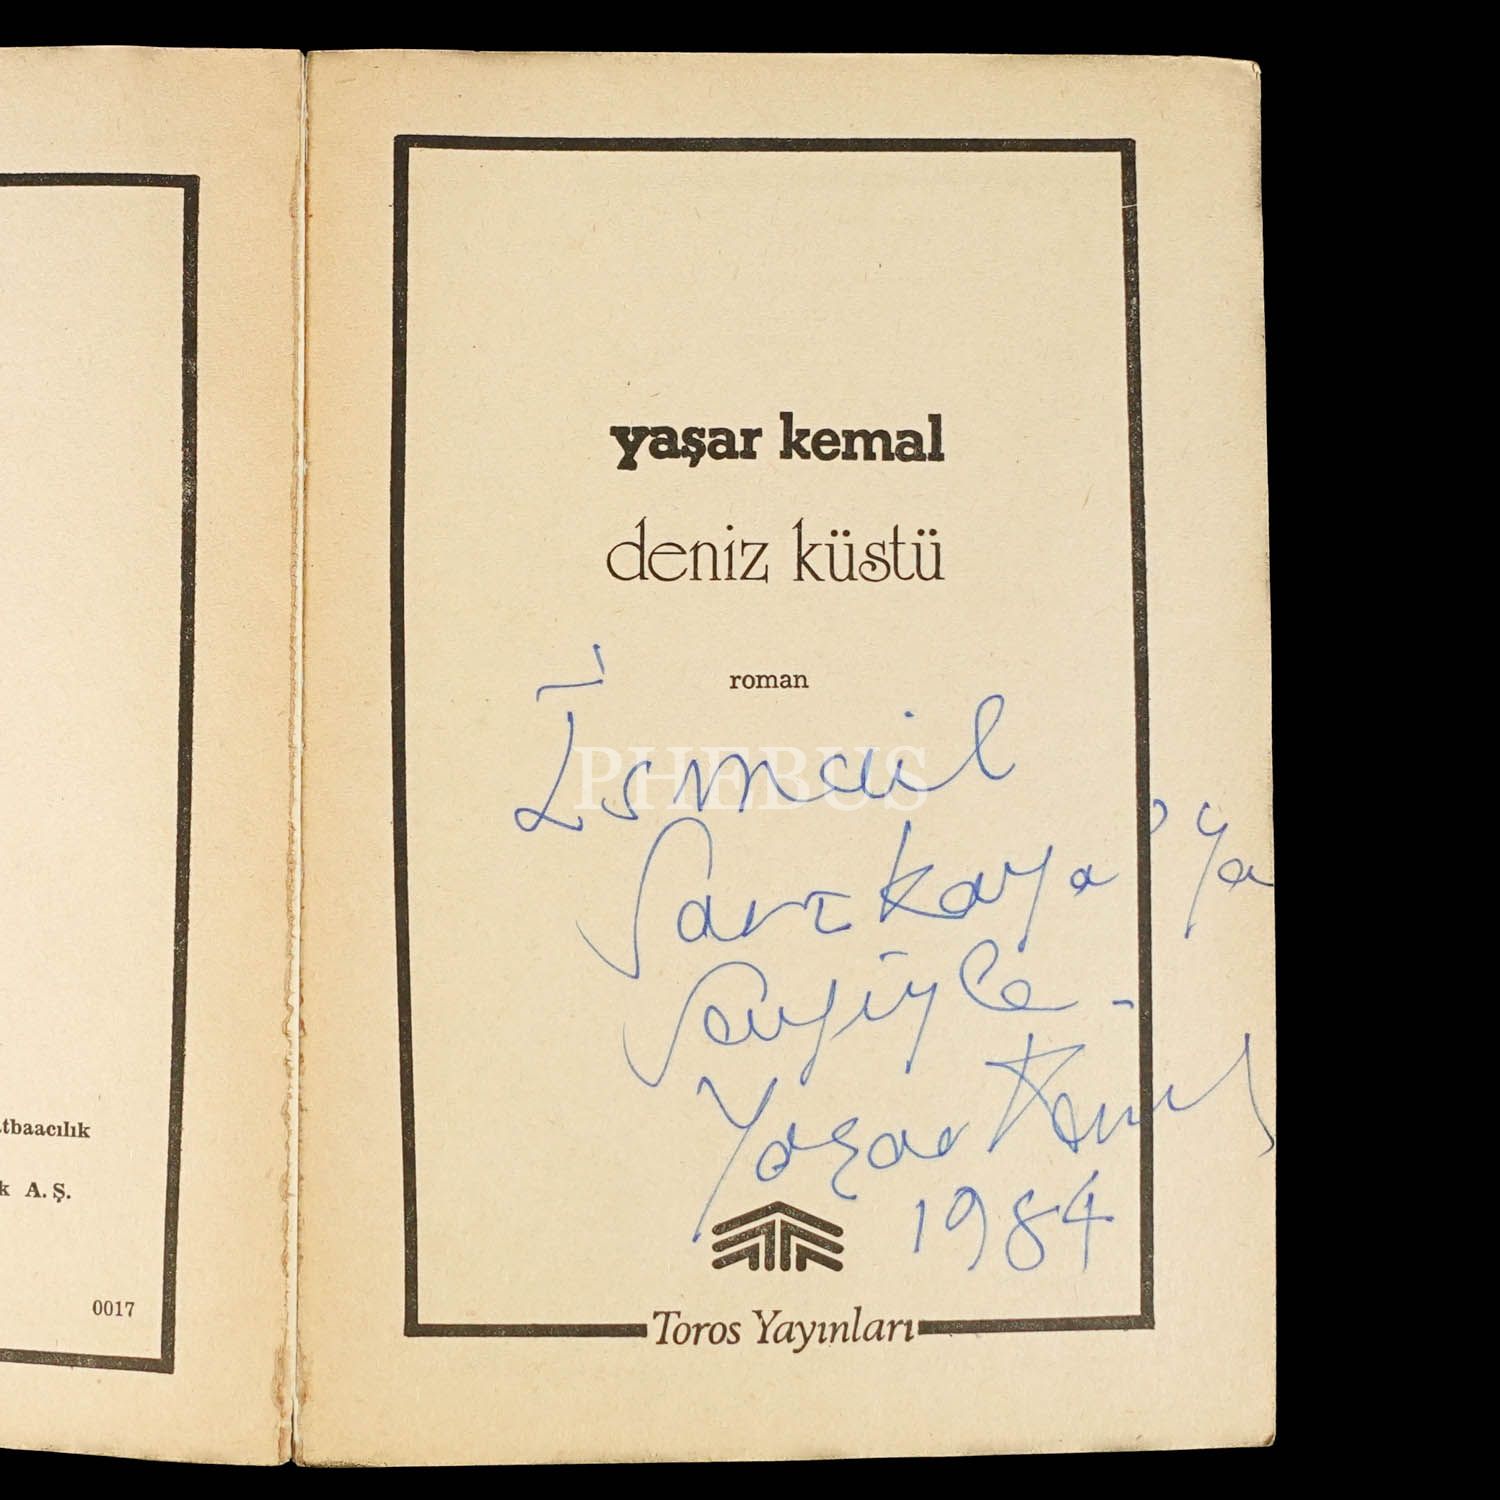 tbaacılık
k A. Ş.
0017
yaşar kemal
deniz küstü
roman
İsmail
Sarıkaya'ya
Sevgiyle -
Yaşar Kemal
1984
Toros Yayınları
PHEBUS